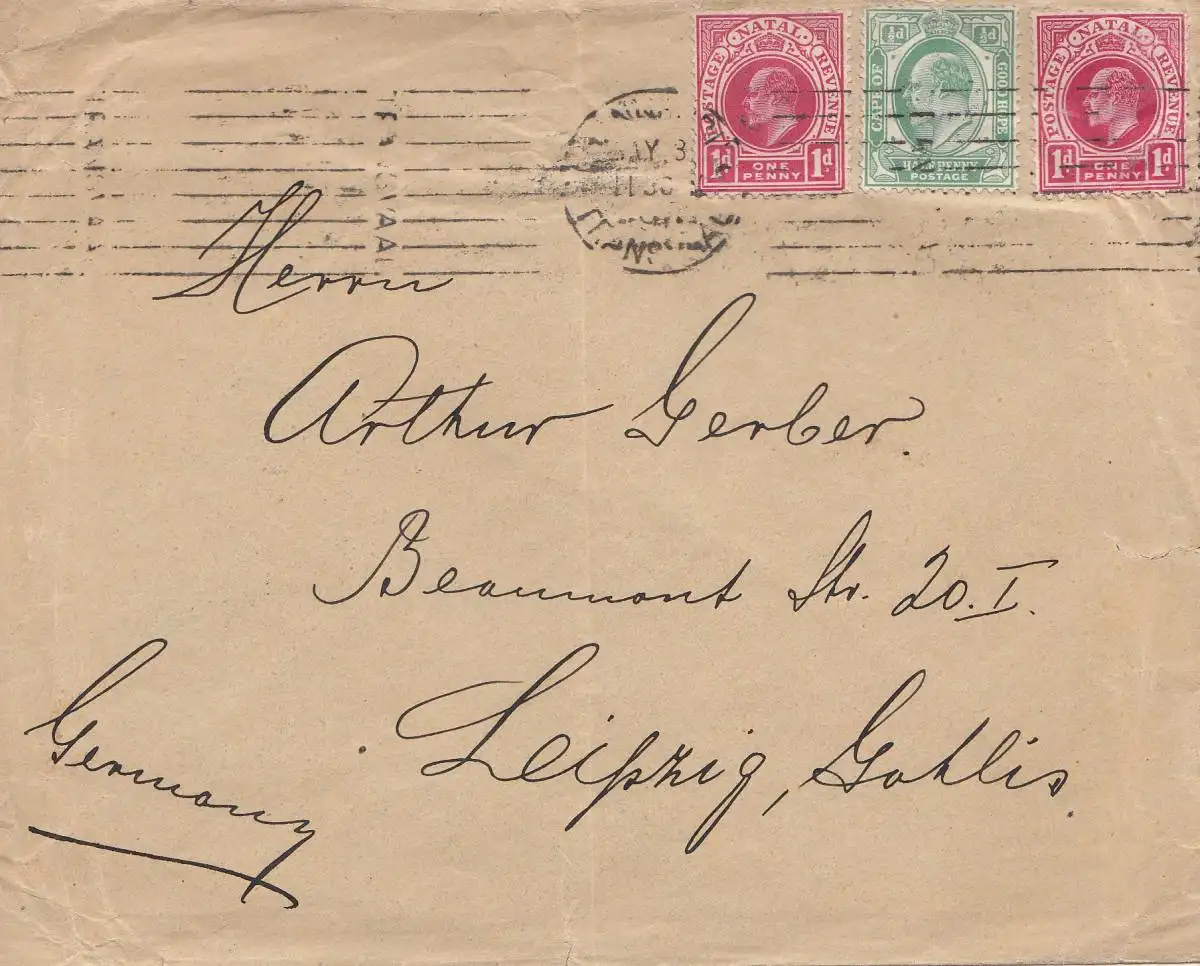 POSTAGE NATAL REVENUE
1d ONE PENNY 1d
½d ½d
CAPE OF GOOD HOPE
HALFPENNY
POSTAGE
POSTAGE NATAL REVENUE
1d ONE PENNY 1d
Herrn
Arthur Gerber.
Beaumont Str. 20. I.
Leipzig, Gohlis.
Germany